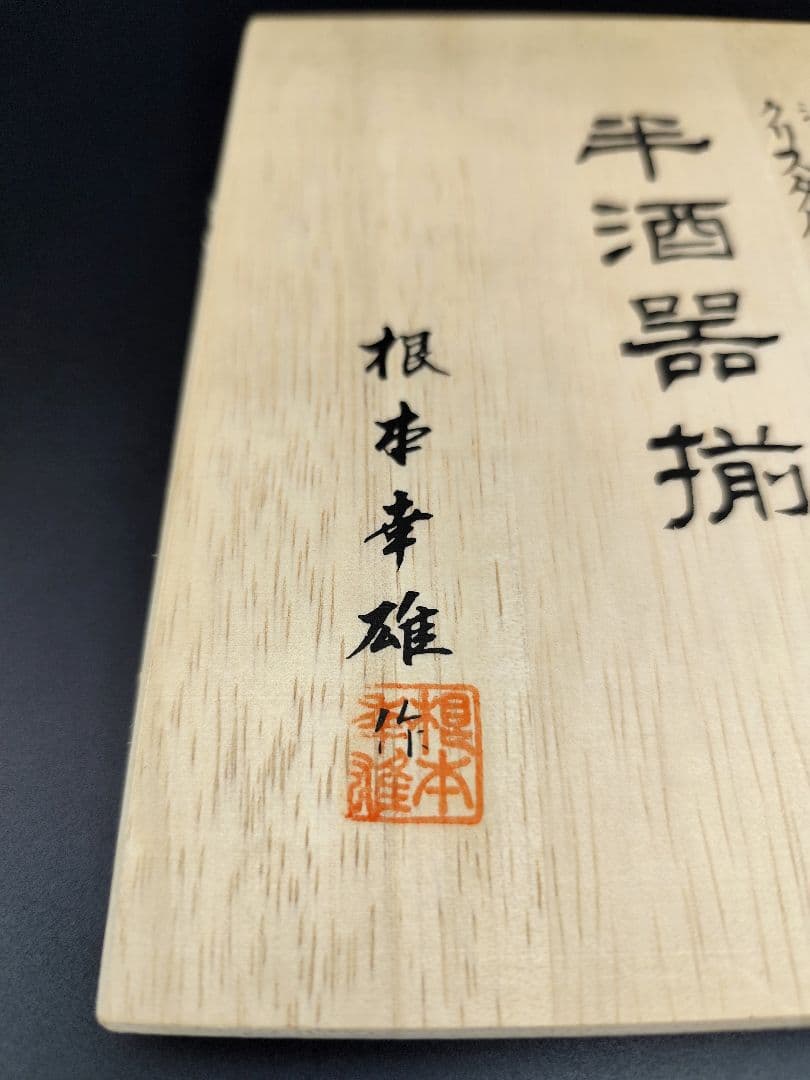 クリスタル
半酒器揃
根本幸雄作
根本幸雄